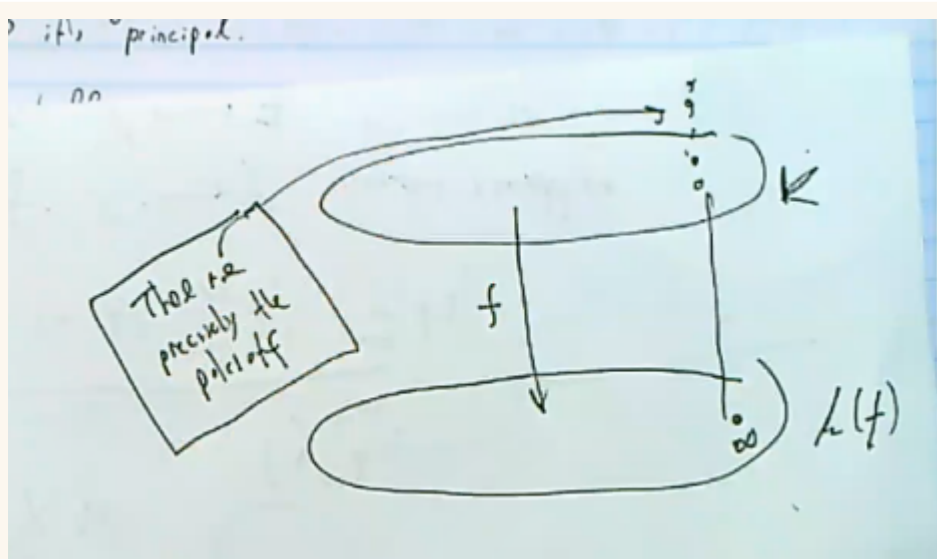 principal.
K
These are
precisely the
poles of f
f
∞
k(f)